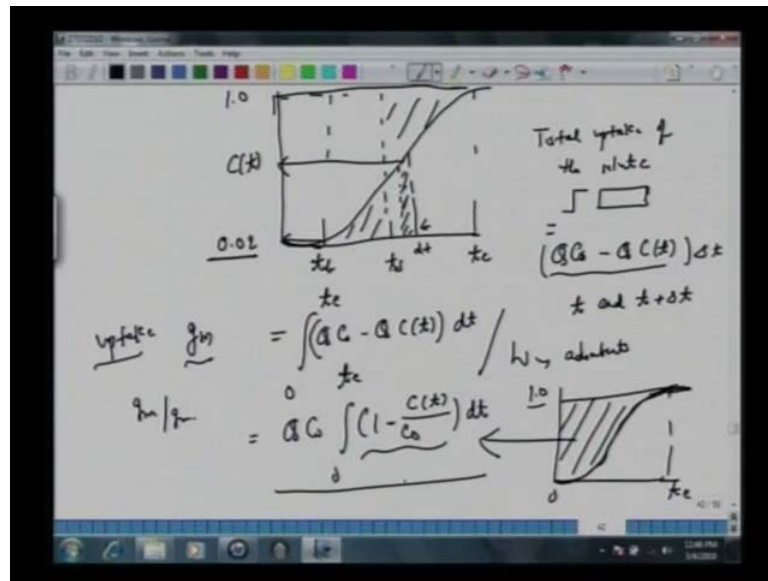 File Edit View Insert Actions Tools Help
1.0
C(t)
0.02
t_b
t_s
dt
t_e
Total uptake of
the solute
=
(QC₀ - QC(t)) Δt
t and t+Δt
uptake gm = ∫₀^{t_e} (QC₀ - QC(t)) dt / W → adsorbents
gm/gm = QC₀ ∫₀^{t_e} (1 - C(t)/C₀) dt
1.0
0
t_e
42
12:46 PM
3/4/2010